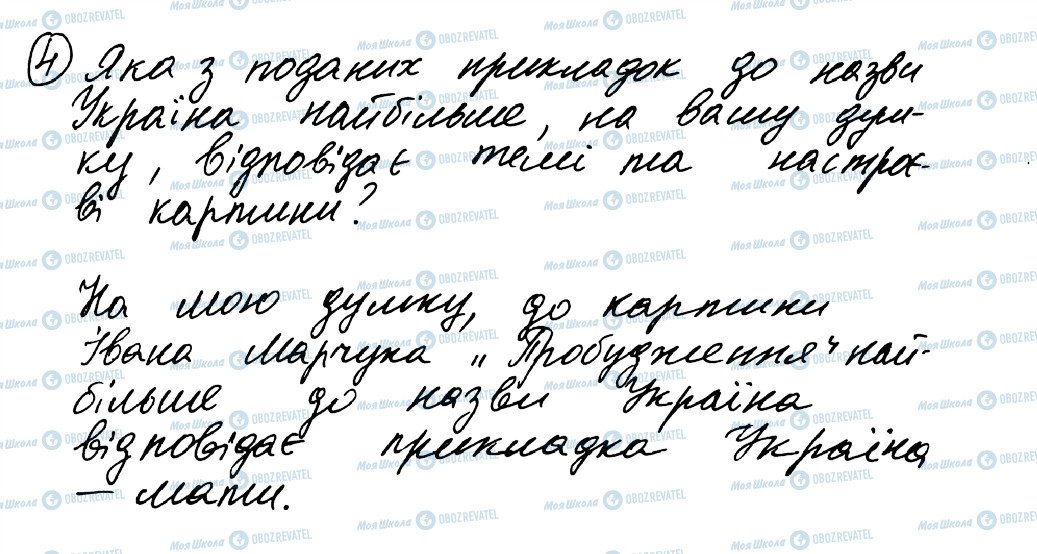 4 Яка з поданих прикладок до назви
Україна найбільше, на вашу дум-
ку, відповідає темі та настро-
ві картини?
На мою думку, до картини
Івана Марчука „Пробудження" най-
більше до назви Україна
відповідає прикладка Україна
— мати.